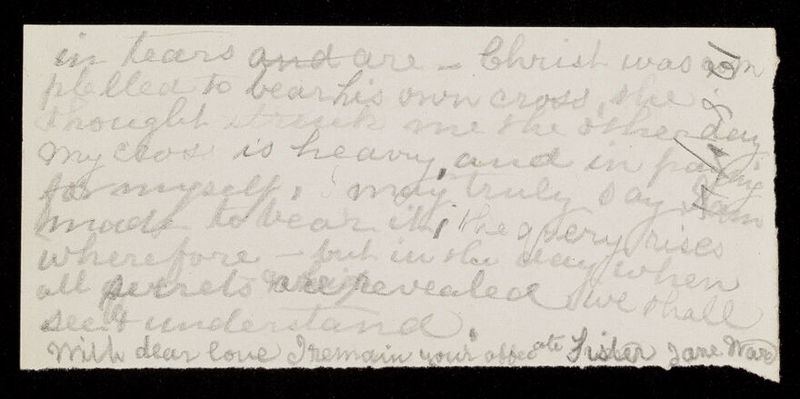 in tears and are – Christ was com
pelled to bear his own cross, the
thought struck me the other day
My cross is heavy, and in pa
for myself, I may truly say I am
made to bear it; the query rises
wherefore – but in the day when
all secrets are revealed we shall
see & understand.
With dear love I remain your affec ate Sister Jane Ward